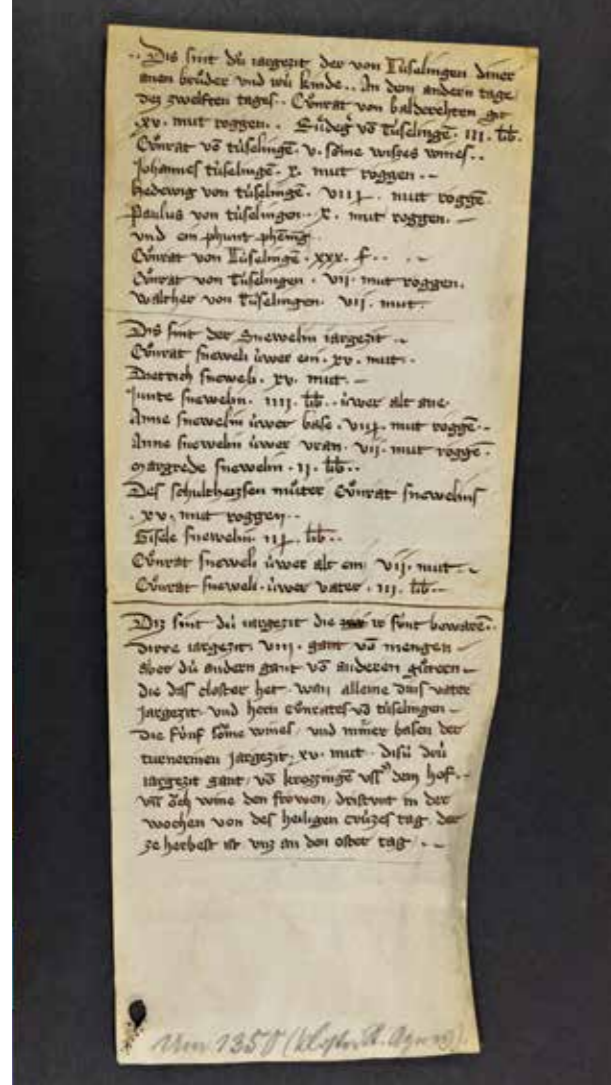 ·· Dis sint dú iargezit der von Túselingen diner
anen brůder vnd wú kinde ·· An dem andern tage
des zwelften tages · Cůnrat von balderehten git
·xv· mut roggen ·· vō túselingē · III · lib ·
Cůnrat vō túselingē · v · sŏme wisses wines ··
Johannes túselingē · x · mut roggen ·
hedewig von túselingē · VIIJ · mut roggē
Paulus von túselingen · x · mut roggen ·
vnd ein phunt phēnīg
Cůnrat von Túselingē · xxx · f ··
Cůnrat von túselingen · VIJ · mut roggen ·
Walther von túselingen · VIJ · mut ·
Dis sint der Snewelin iargezit ··
Cůnrat sneweli úwer eni · xv · mut ·
Dietrich sneweli · xv · mut ·
Junte snewelin · IIIJ · lib ·· úwer alt ane ·
Anne snewelin úwer base · VIIJ · mut roggē ·
Anne snewelin úwer vran · VIJ · mut roggē ·
Margrede snewelin · IJ · lib ··
Des schultheissen můter Cůnrat snewelins
· xv · mut roggen ··
Gisele snewelin · IIJ · lib ··
Cůnrat sneweli úwer alt eni · VIJ · mut ·
Cůnrat sneweli · úwer vater · IIJ · lib ··
Diz sint dú iargezit die ir sŏnt bewaren ··
dirre iargezit · VIIJ · gant vō mengen
aber dú andern gant vō anderen gůtern
die das closter het · wan alleine vater
Jargezit · vnd hern cůnrates vō túselingen
die fúnf sŏme wines / vnd miner basen der
turnerinen Jargezit · xv · mut · disú drú
iargezit gant / vō krozzingē vss dem hof ·
ŏch wine den frowen · dristunt in der
wochen von des heiligen crúzes tag · der
ze herbest ist vnz an den oster tag ··
Um 1350 (Kloster St. Agnes).